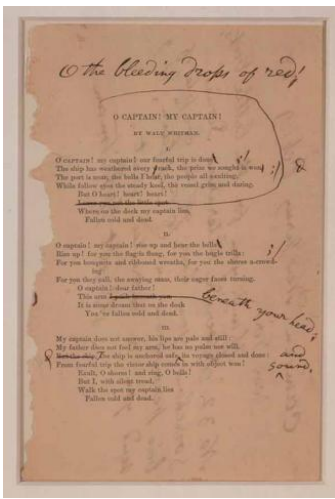 O the bleeding drops of red!
O CAPTAIN! MY CAPTAIN!
BY WALT WHITMAN.
I.
O CAPTAIN! my captain! our fearful trip is done
The ship has weathered every the prize we sought is won
The port is near, the bells I hear, the people all exulting,
While follow eyes the steady keel, the vessel grim and daring.
But O heart! heart! heart!
Leave you not the little spot,
Where on the deck my captain lies,
Fallen cold and dead.
II.
O captain! my captain! rise up and hear the bells
Rise up! for you the flag is flung, for you the bugle trills:
For you bouquets and ribboned wreaths, for you the shores a-crowd-
ing:
For you they call, the swaying mass, their eager faces turning.
O captain! dear father!
This arm
beneath your head;
It is some dream that on the deck
You've fallen cold and dead.
III.
My captain does not answer, his lips are pale and still:
My father does not feel my arm, he has no pulse nor will.
But the ship, The ship is anchored safe, its voyage closed and done:
and sound,
From fearful trip the victor ship comes in with object won!
Exult, O shores! and ring, O bells!
But I, with silent tread,
Walk the spot my captain lies
Fallen cold and dead.